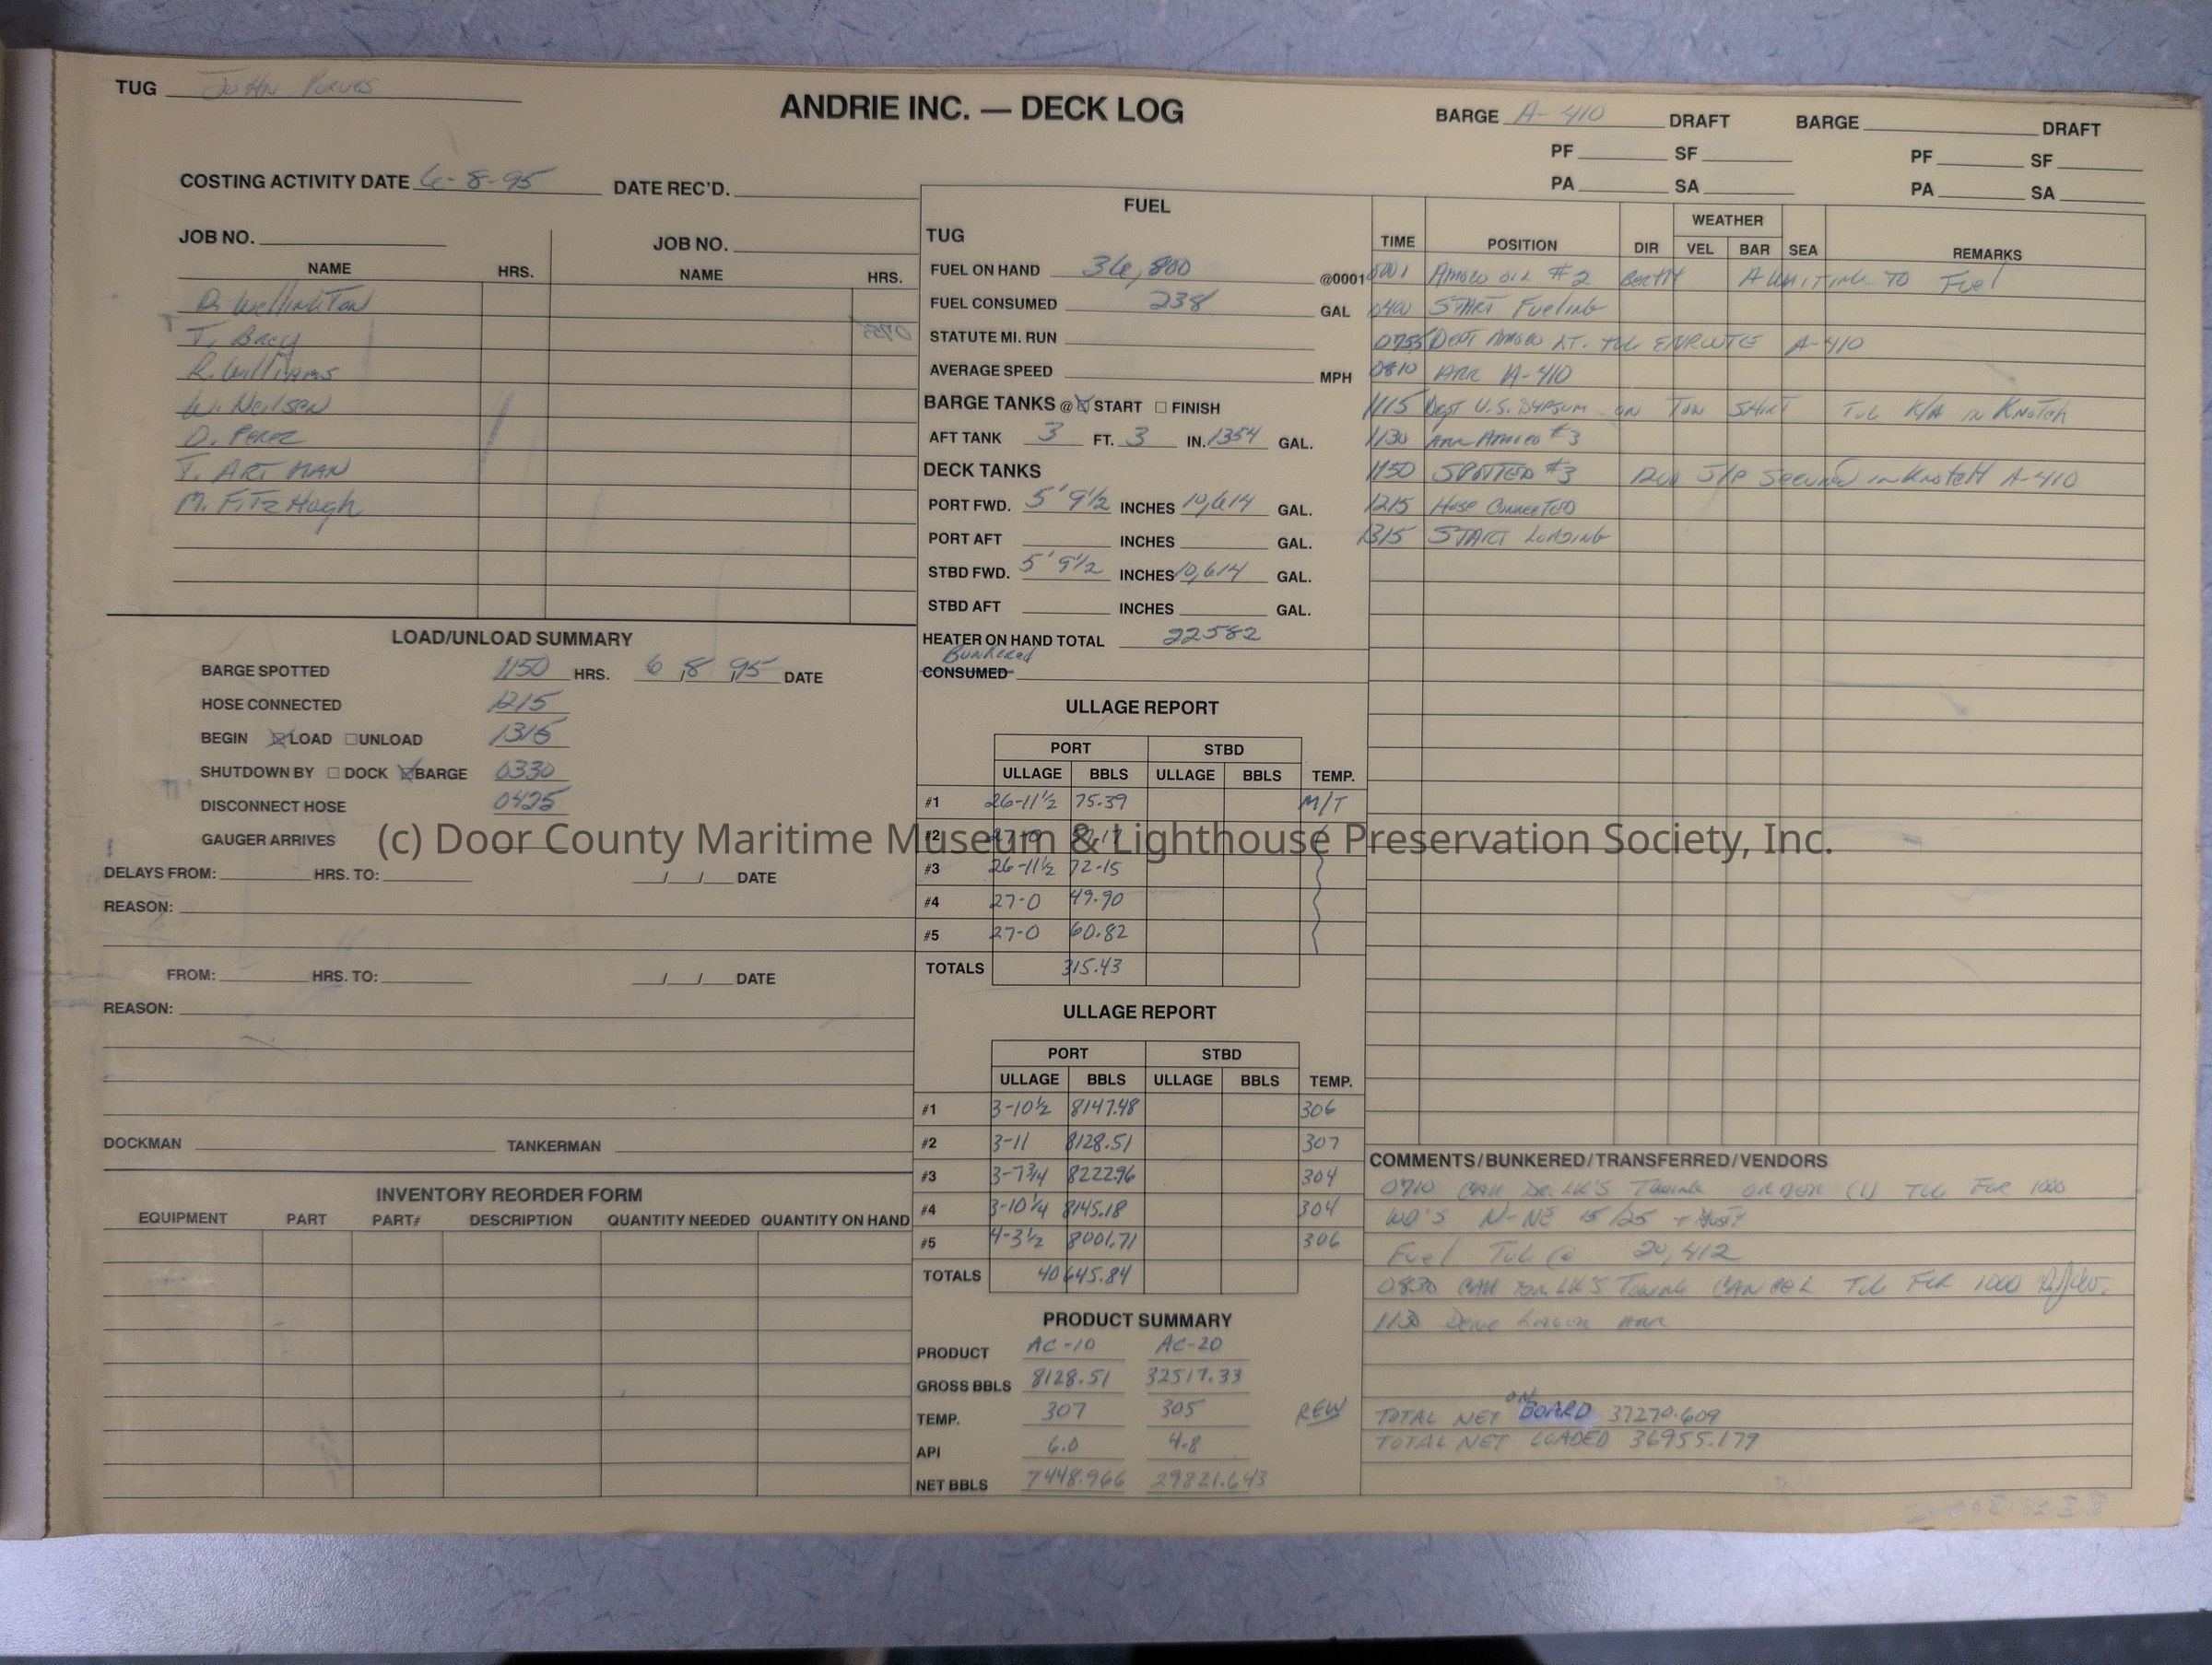 TUG John Purves
ANDRIE INC. — DECK LOG
BARGE A-410 DRAFT
PF SF
PA SA
BARGE DRAFT
PF SF
PA SA
COSTING ACTIVITY DATE 6-8-95 DATE REC'D.
JOB NO. JOB NO.
NAME HRS. NAME HRS.
D. Wellington
T. Brey
R. Williams
W. Neilsen
D. Perez
T. ARTMAN
M. FitzHugh
LOAD/UNLOAD SUMMARY
BARGE SPOTTED 1150 HRS. 6/8/95 DATE
HOSE CONNECTED 1215
BEGIN ☒LOAD ☐UNLOAD 1315
SHUTDOWN BY ☐ DOCK ☒BARGE 0330
DISCONNECT HOSE 0425
GAUGER ARRIVES
DELAYS FROM: HRS. TO: / / DATE
REASON:
FROM: HRS. TO: / / DATE
REASON:
DOCKMAN TANKERMAN
INVENTORY REORDER FORM
EQUIPMENT PART PART# DESCRIPTION QUANTITY NEEDED QUANTITY ON HAND
FUEL
TUG
FUEL ON HAND 36,800 @0001
FUEL CONSUMED 238 GAL
STATUTE MI. RUN
AVERAGE SPEED MPH
BARGE TANKS @ ☒ START ☐ FINISH
AFT TANK 3 FT. 3 IN. 1354 GAL.
DECK TANKS
PORT FWD. 5' 9 1/2 INCHES 10,614 GAL.
PORT AFT INCHES GAL.
STBD FWD. 5' 9 1/2 INCHES 10,614 GAL.
STBD AFT INCHES GAL.
HEATER ON HAND TOTAL 22582
Bunkered
CONSUMED
ULLAGE REPORT
PORT STBD
ULLAGE BBLS ULLAGE BBLS TEMP.
#1 26-11 1/2 75.39 M/T
#2 27-0
#3 26-11 1/2 72-15
#4 27-0 49.90
#5 27-0 60.82
TOTALS 315.43
ULLAGE REPORT
PORT STBD
ULLAGE BBLS ULLAGE BBLS TEMP.
#1 3-10 1/2 8147.48 306
#2 3-11 8128.51 307
#3 3-7 3/4 8222.96 304
#4 3-10 1/4 8145.18 304
#5 4-3 1/2 8001.71 306
TOTALS 40645.84
PRODUCT SUMMARY
PRODUCT AC-10 AC-20
GROSS BBLS 8128.51 32517.33
TEMP. 307 305 REW
API 6.0 4.8
NET BBLS 7448.966 29821.643
WEATHER
TIME POSITION DIR VEL BAR SEA REMARKS
0001 Amoco oil #2 Berth AWAITING TO Fuel
0400 START Fueling
0755 Dept Amoco LT. TUG ENROUTE A-410
0810 ARR A-410
1115 Dept U.S. GYPSUM on Tow SHIRT TUG K/A in Knotch
1130 Arr Amoco #3
1150 SPOTTED #3 TUG S/P Secured in Knotch A-410
1215 Hose Connected
1315 START LOADING
COMMENTS/BUNKERED/TRANSFERRED/VENDORS
0710 Call Towing ORDER (1) TUG FOR 1000
WD'S N-NE 15/25 +
Fuel TUG @ 20,412
0830 Call Towing CANCEL TUG FOR 1000
1130
TOTAL NET ON BOARD 37270.609
TOTAL NET LOADED 36955.179
(c) Door County Maritime Museum & Lighthouse Preservation Society, Inc.